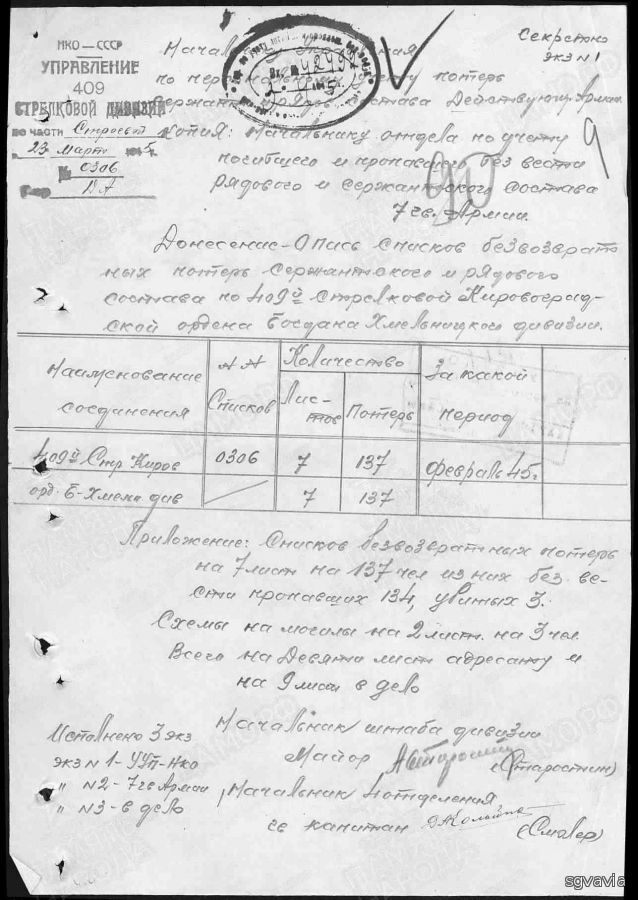 НКО–СССР
УПРАВЛЕНИЕ
409
СТРЕЛКОВОЙ ДИВИЗИИ
по части Строевой
"23" Марта 1945г.
№ 0306
ДА
Секретно
экз N1
Начальнику Управления
по персональному учету потерь
сержант. и рядов. состава Действующ. Армии
Копия: Начальнику отдела по учету
погибшего и пропавшего без вести
рядового и сержантского состава
7 гв. Армии.
9
Донесение-Опись списков безвозврат
ных потерь сержантского и рядового
состава по 409й Стрелковой Кировоград-
ской ордена Богдана Хмельницкого дивизии.
Наименование соединения
Списков
Количество
Лис-тов
Потерь
За какой период
409й Стр Киров 0306 7 137 февраль 45г
орд. Б-Хмельн див 7 137
Приложение: Списков безвозвратных потерь
на 7 лист на 137 чел из них без ве-
сти пропавших 134, убитых 3.
Схемы на могилы на 2 лист. на 3 чел.
Всего на Девяти лист адресату и
на 9 лист в дело
Начальник штаба дивизии
Майор (Старостин)
Начальник 4 отделения
гв капитан
Исполнено 3 экз
экз N1-УУП-НКО
" N2-7 гв Армии
" N3-в дело
sgvavia